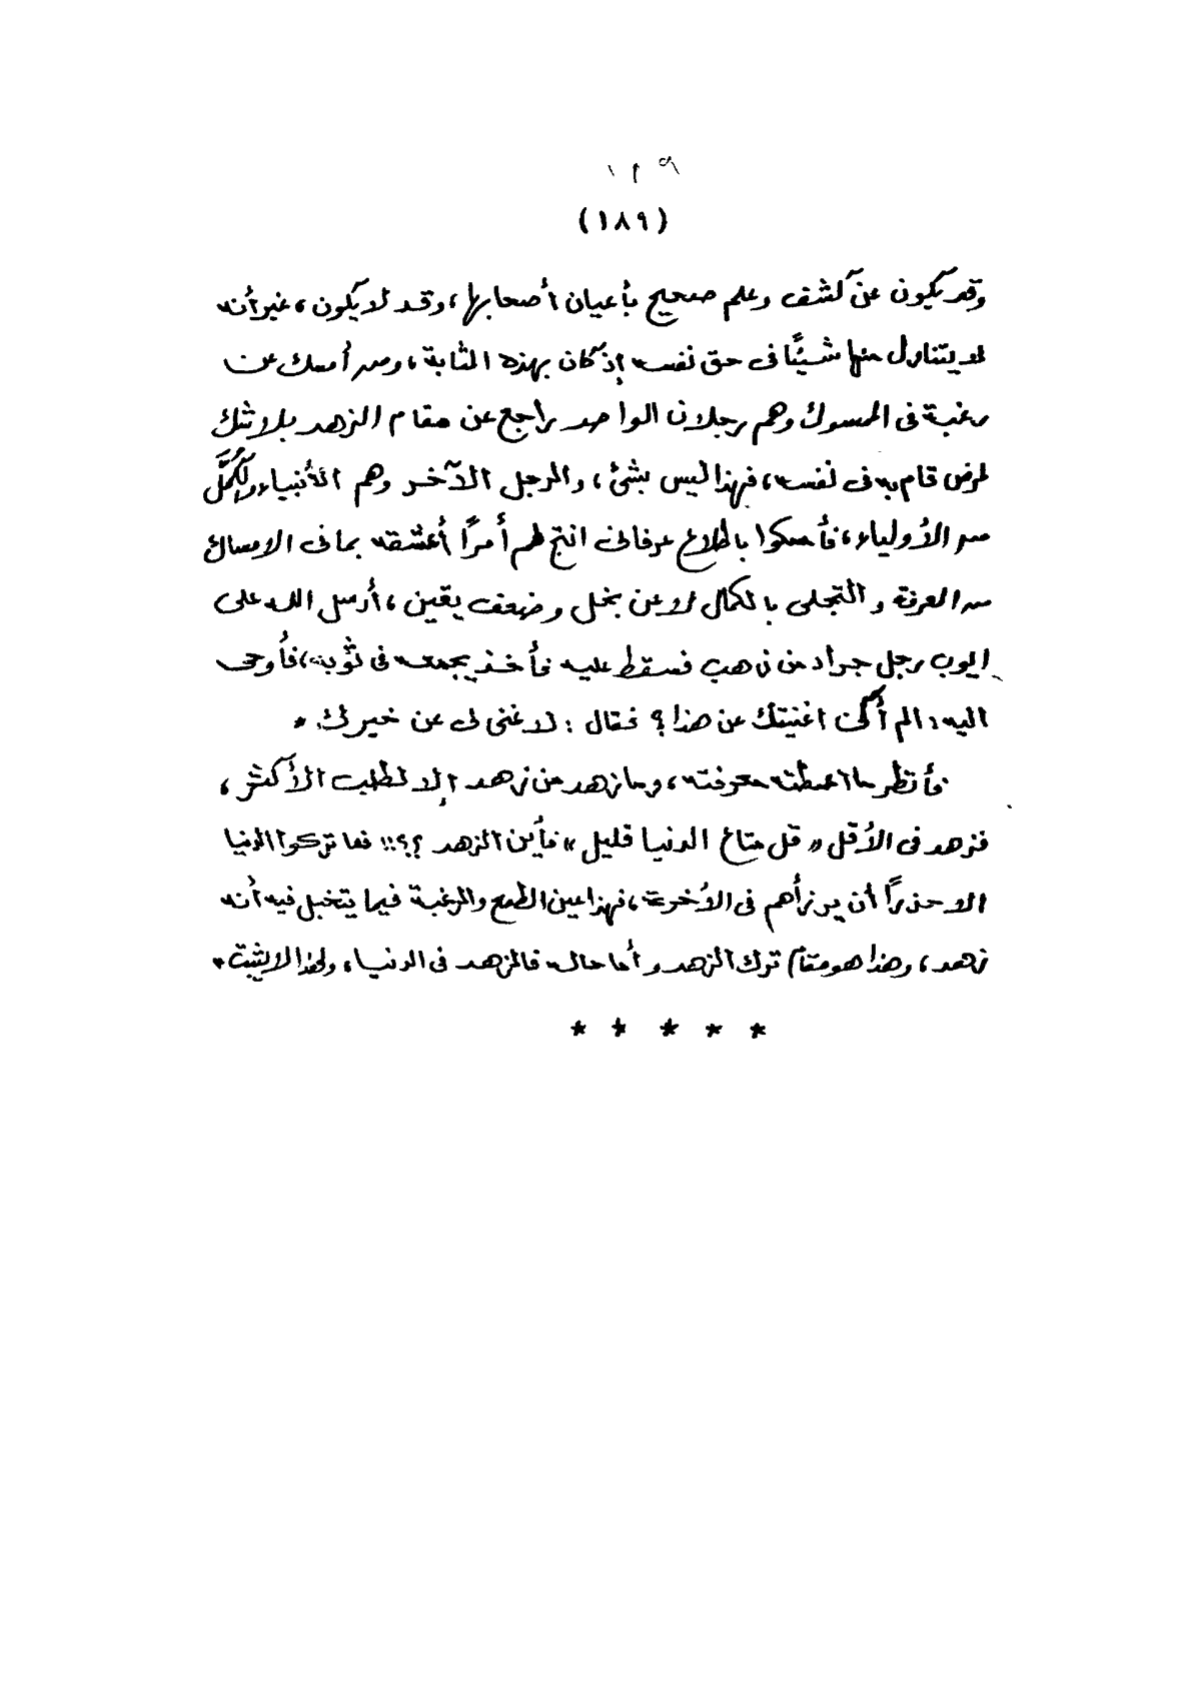 ١٢٩
(١٨٩)
وقد يكون عن كشف وعلم صحيح بأعيان أصحابها، وقد لا يكون، غير أنه
لا يتناول منها شيئًا في حق نفسه إذ كان بهذه المثابة، ومن أمسك عن
رغبة في الممسوك وهم رجلان الواحد راجع عن مقام الزهد بلا شك
لمرض قام به في نفسه، فهذا ليس بشئ، والرجل الآخر وهم الأنبياء والكُمَّل
من الأولياء، فأمسكوا باطلاع عرفاني انتج لهم أمرًا أعشقه بما في الامساك
من المعرفة والتجلى بالكمال لا عن بخل وضعف يقين، أرسل الله على
ايوب رجل جراد من ذهب فسقط عليه فأخذ يجمعه في ثوبه، فأوحى
اليه: الم أكن اغنيتك عن هذا؟ فقال: لا غنى لى عن خيرك.
فأنظر ما اعطته معرفته، وما زهد من زهد إلا لطلب الأكثر،
فزهد في الأقل «قل متاع الدنيا قليل» فأين الزهد ؟؟!! فما تركوا الدنيا
الا حذرًا أن يرزأهم في الأخرة، فهذا عين الطمع والرغبة فيما يتخيل فيه أنه
زهد، وهذا هو مقام ترك الزهد وأما حاله فالزهد في الدنيا، ولهذا لا يثبت.
* * * * *